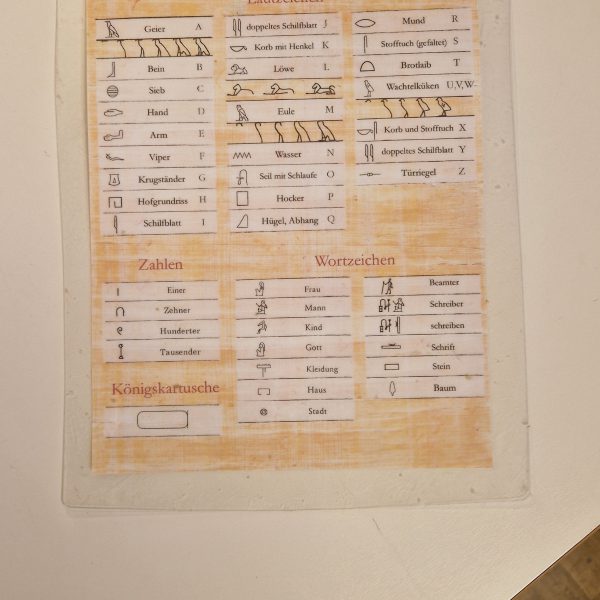 Lautzeichen
Geier A
Bein B
Sieb C
Hand D
Arm E
Viper F
Krugständer G
Hofgrundriss H
Schilfblatt I
doppeltes Schilfblatt J
Korb mit Henkel K
Löwe L
Eule M
Wasser N
Seil mit Schlaufe O
Hocker P
Hügel, Abhang Q
Mund R
Stofftuch (gefaltet) S
Brotlaib T
Wachtelküken U,V,W
Korb und Stofftuch X
doppeltes Schilfblatt Y
Türriegel Z
Zahlen
Einer
Zehner
Hunderter
Tausender
Königskartusche
Wortzeichen
Frau
Mann
Kind
Gott
Kleidung
Haus
Stadt
Beamter
Schreiber
schreiben
Schrift
Stein
Baum